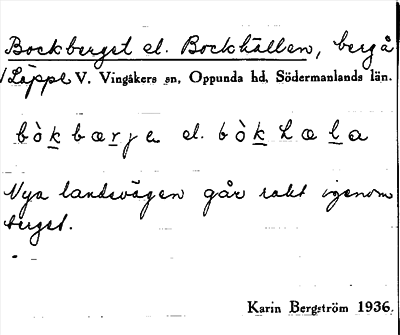 Bockberget el. Bockhällen, berg å
Läppe V. Vingåkers sn, Oppunda hd, Södermanlands län.
bòk bærje el. bòk hæla
Nya landsvägen går rakt igenom
berget.
Karin Bergström 1936.